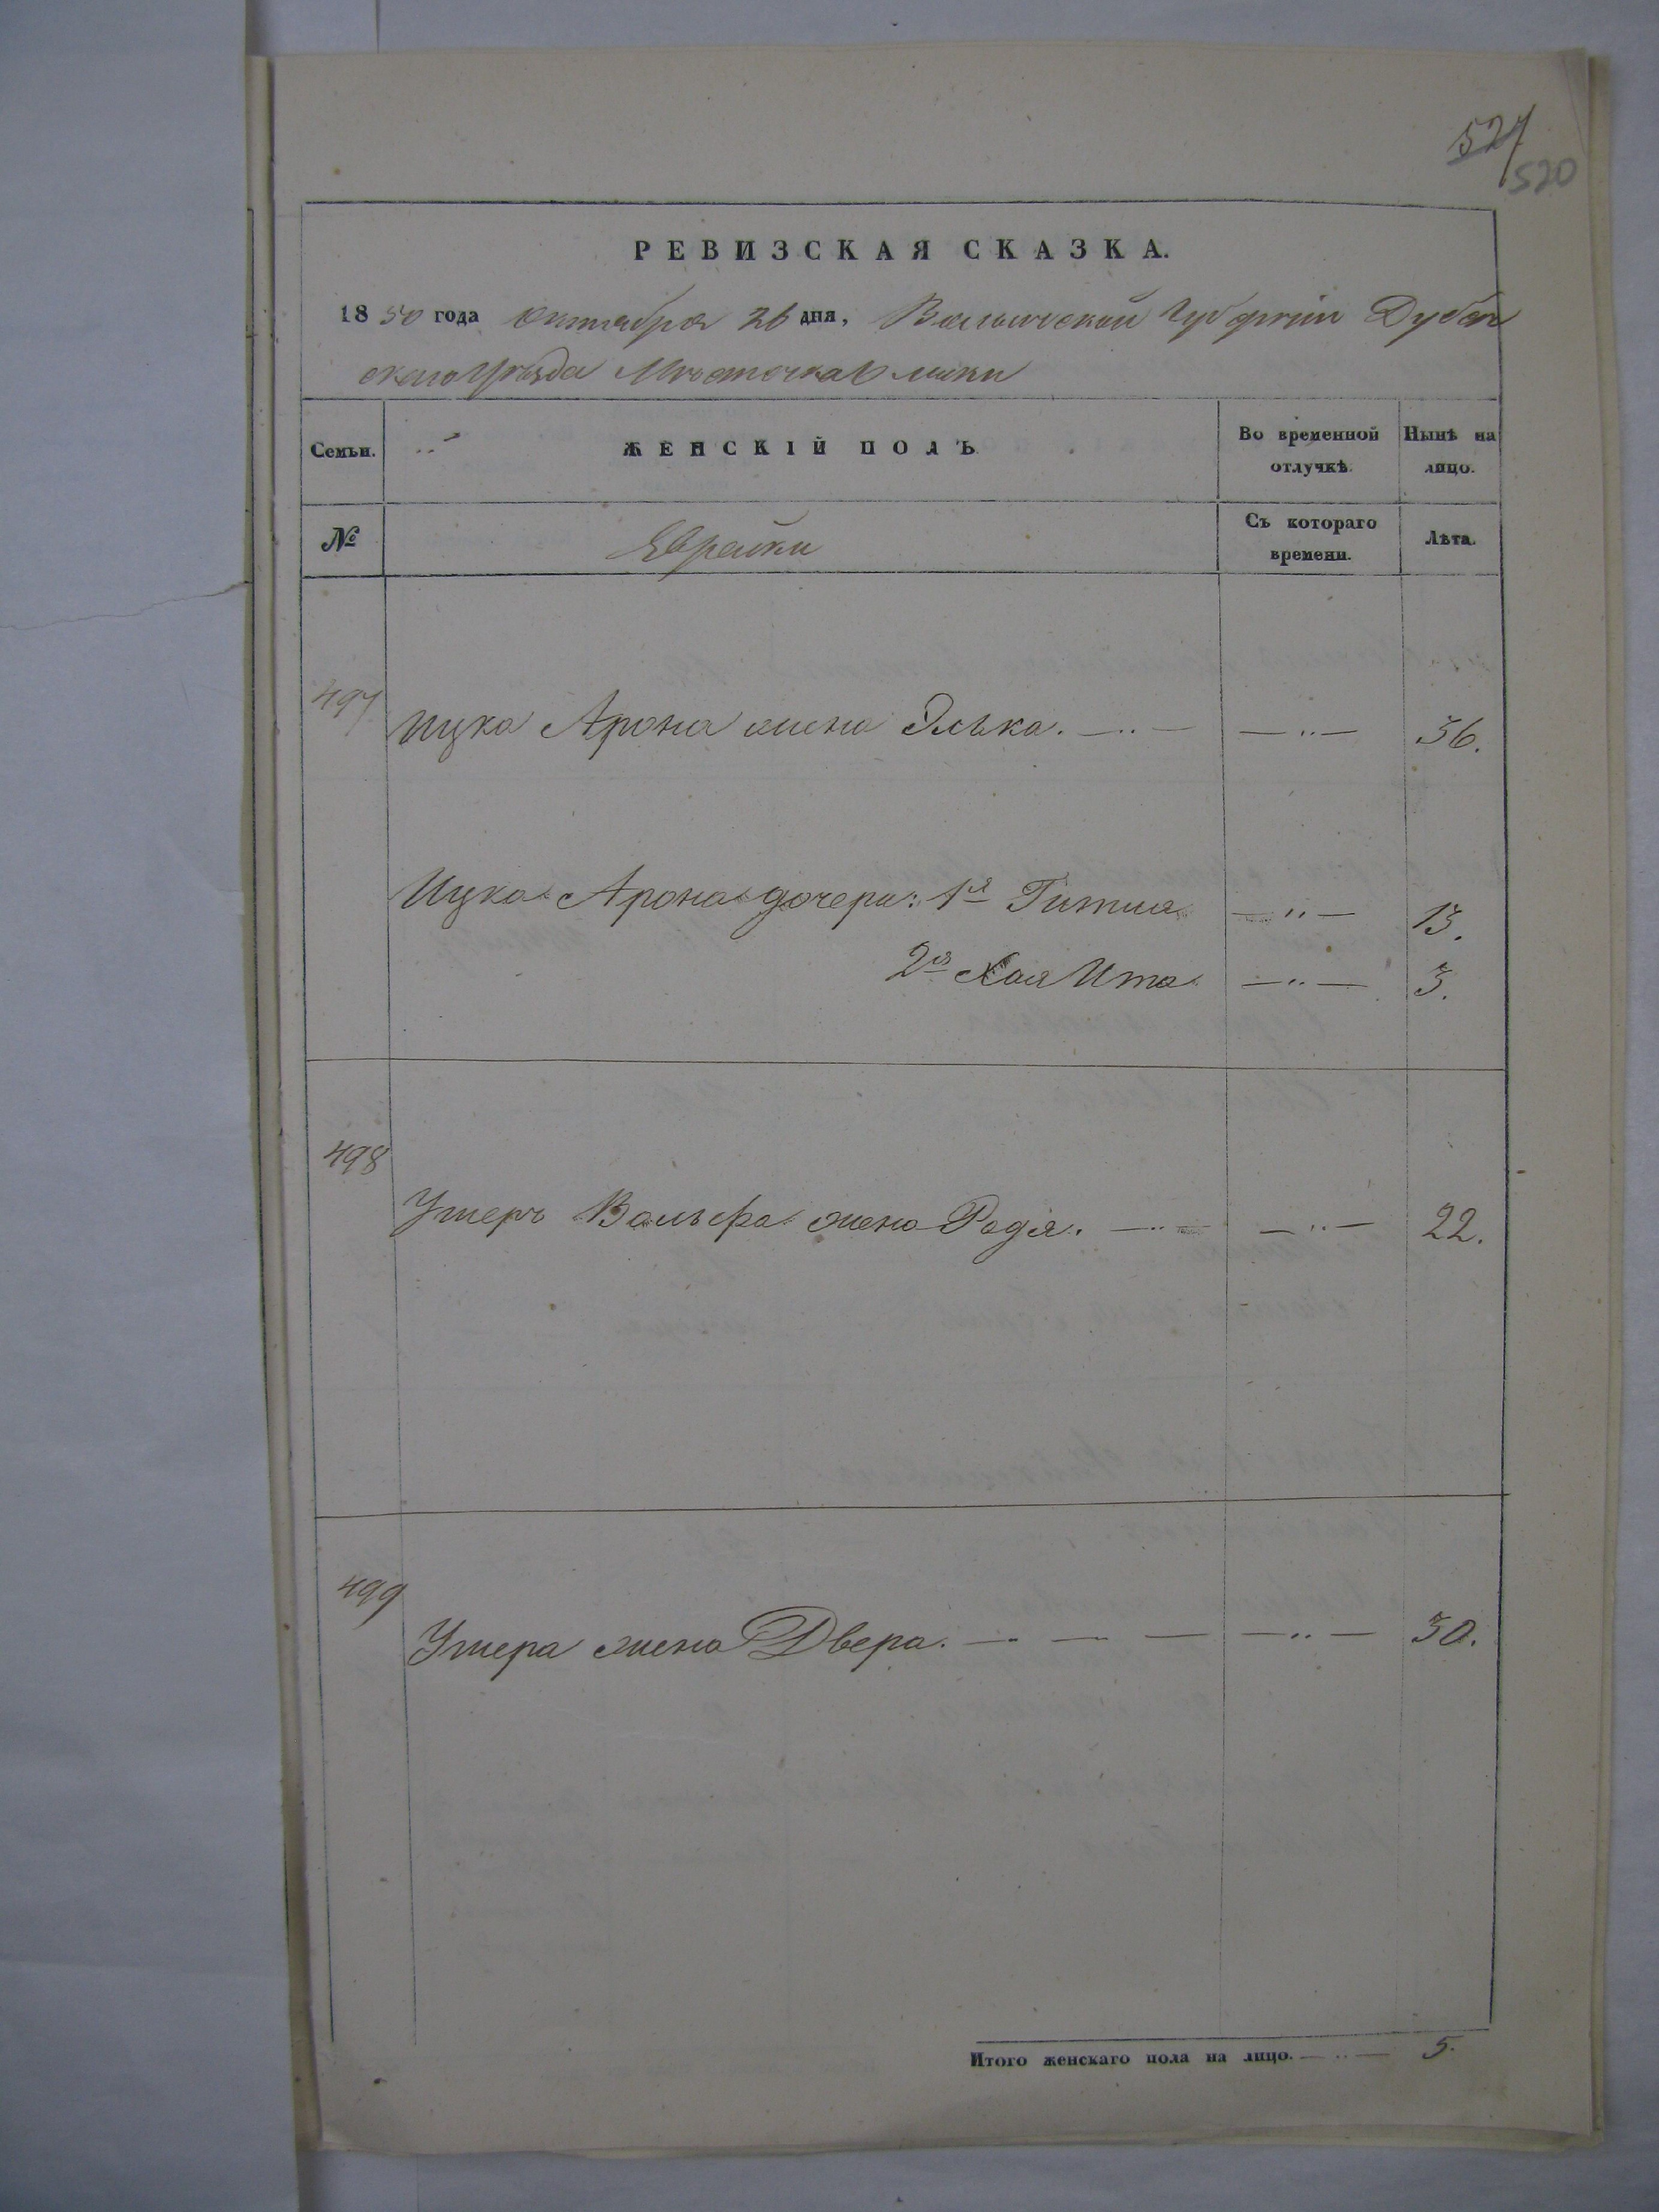 527
520
РЕВИЗСКАЯ СКАЗКА.
1850 года Октября 26 дня, Волынской Губернiи Дубен
скаго Уѣзда Мѣстечка Олыки
Семьи. ЖЕНСКIЙ ПОЛЪ Во временной отлучкѣ. Нынѣ на лицо.
№ Еврейки Съ котораго времени. Лѣта.
497 Ицка Арона жена Элька. — ·· — — ·· — 36.
Ицка Арона дочери: 1я Гитля — ·· — 13.
2я Хая Ита — ·· — 3.
498
Ушеръ Вольфа жена Родя. — ·· — — ·· — 22.
499
Ушера жена Двера. — — — — ·· — 30.
Итого женскаго пола на лицо. — ·· — 5.